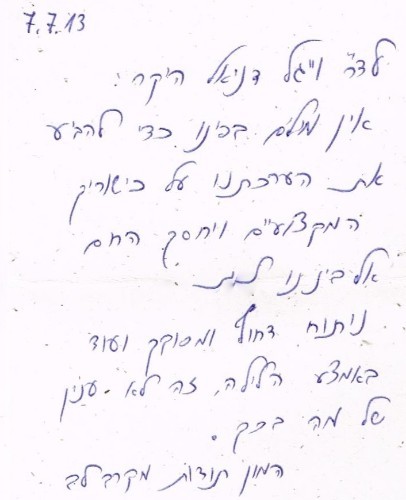 7.7.13
לדר' וייגל דניאל היקר:
אין מילים בפינו כדי להביע
את הערכתנו על כישוריך
המקצועיים ויחסך החם
אל בי
ניתוח דחוף ומסובך ועוד
באמצע הלילה, זה לא ענין
של מה בכך.
המון תודות מקרב לב